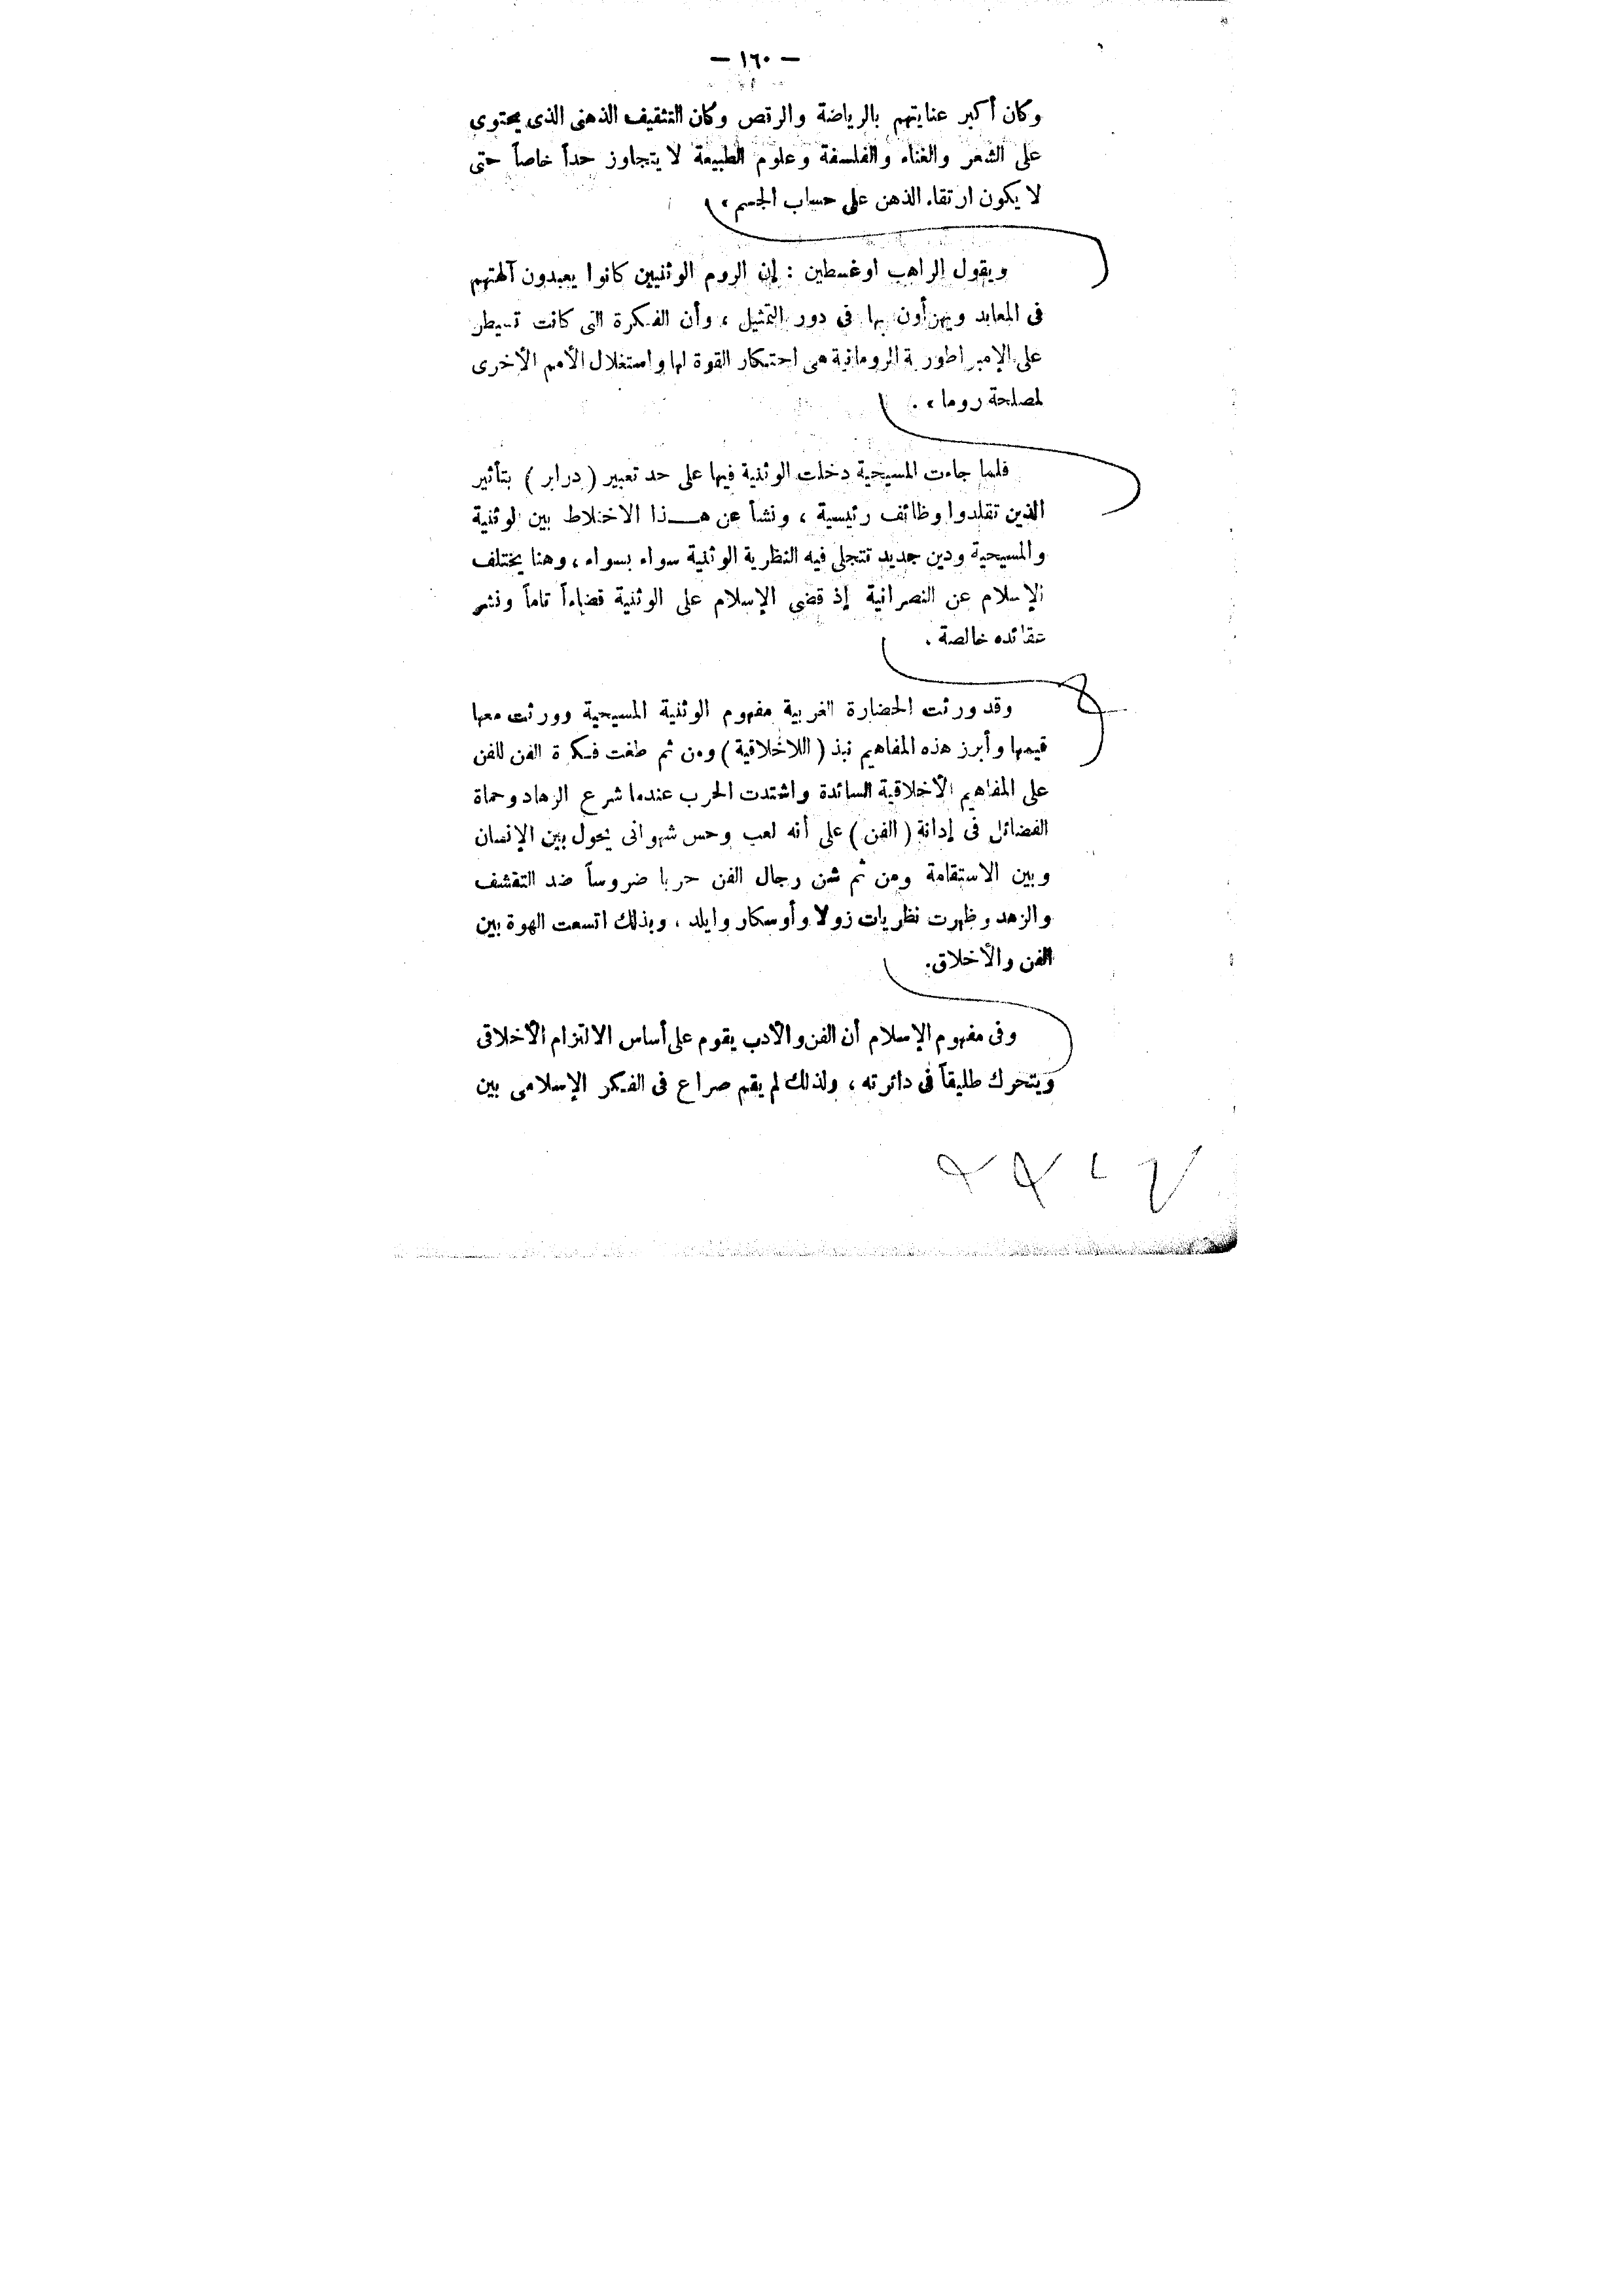 — ١٦٠ —
وكان أكبر عنايتهم بالرياضة والرقص وكان التثقيف الذهنى الذى يحتوى
على الشعر والغناء والفلسفة وعلوم الطبيعة لا يتجاوز حداً خاصاً حتى
لا يكون ارتقاء الذهن على حساب الجسم ،
ويقول الراهب اوغسطين : إن الروم الوثنيين كانوا يعبدون آلهتهم
فى المعابد ويهزأون بها فى دور التمثيل ، وأن الفكرة التى كانت تسيطر
على الإمبراطورية الرومانية هى احتكار القوة لها واستغلال الأمم الأخرى
لمصلحة روما ، .
فلما جاءت المسيحية دخلت الوثنية فيها على حد تعبير ( درابر ) بتأثير
الذين تقلدوا وظائف رئيسية ، ونشأ عن هـــذا الاختلاط بين الوثنية
والمسيحية ودين جديد تتجلى فيه النظرية الوثنية سواء بسواء ، وهنا يختلف
الإسلام عن النصرانية إذ قضى الإسلام على الوثنية قضاءاً تاماً ونشر
عقائده خالصة .
وقد ورثت الحضارة الغربية مفهوم الوثنية المسيحية وورثت معها
قيمها وأبرز هذه المفاهيم نبذ ( اللاخلاقية ) ومن ثم طغت فكرة الفن للفن
على المفاهيم الأخلاقية السائدة واشتدت الحرب عندما شرع الزهاد وحماة
الفضائل فى إدانة ( الفن ) على أنه لعب وحس شهوانى يحول بين الإنسان
وبين الاستقامة ومن ثم شن رجال الفن حربا ضروساً ضد التقشف
والزهد وظهرت نظريات زولا وأوسكار وايلد ، وبذلك اتسعت الهوة بين
الفن والأخلاق.
وفى مفهوم الإسلام أن الفن والأدب يقوم على أساس الالتزام الأخلاقى
ويتحرك طليقاً فى دائرته ، ولذلك لم يقم صراع فى الفكر الإسلامى بين